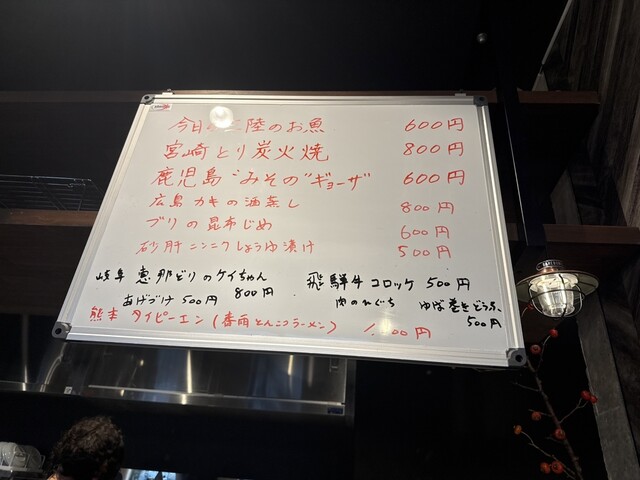 今日の三陸のお魚 600円
宮崎とり炭火焼 800円
鹿児島"みそのギョーザ" 600円
広島カキの酒蒸し 800円
ブリの昆布じめ 600円
砂肝ニンニクしょうゆ漬け 500円
岐阜 恵那どりのケイちゃん 800円 飛騨牛コロッケ 500円
あげづけ 500円 肉の ゆば巻きどうふ 500円
熊本 タイピーエン(春雨とんこつラーメン) 円